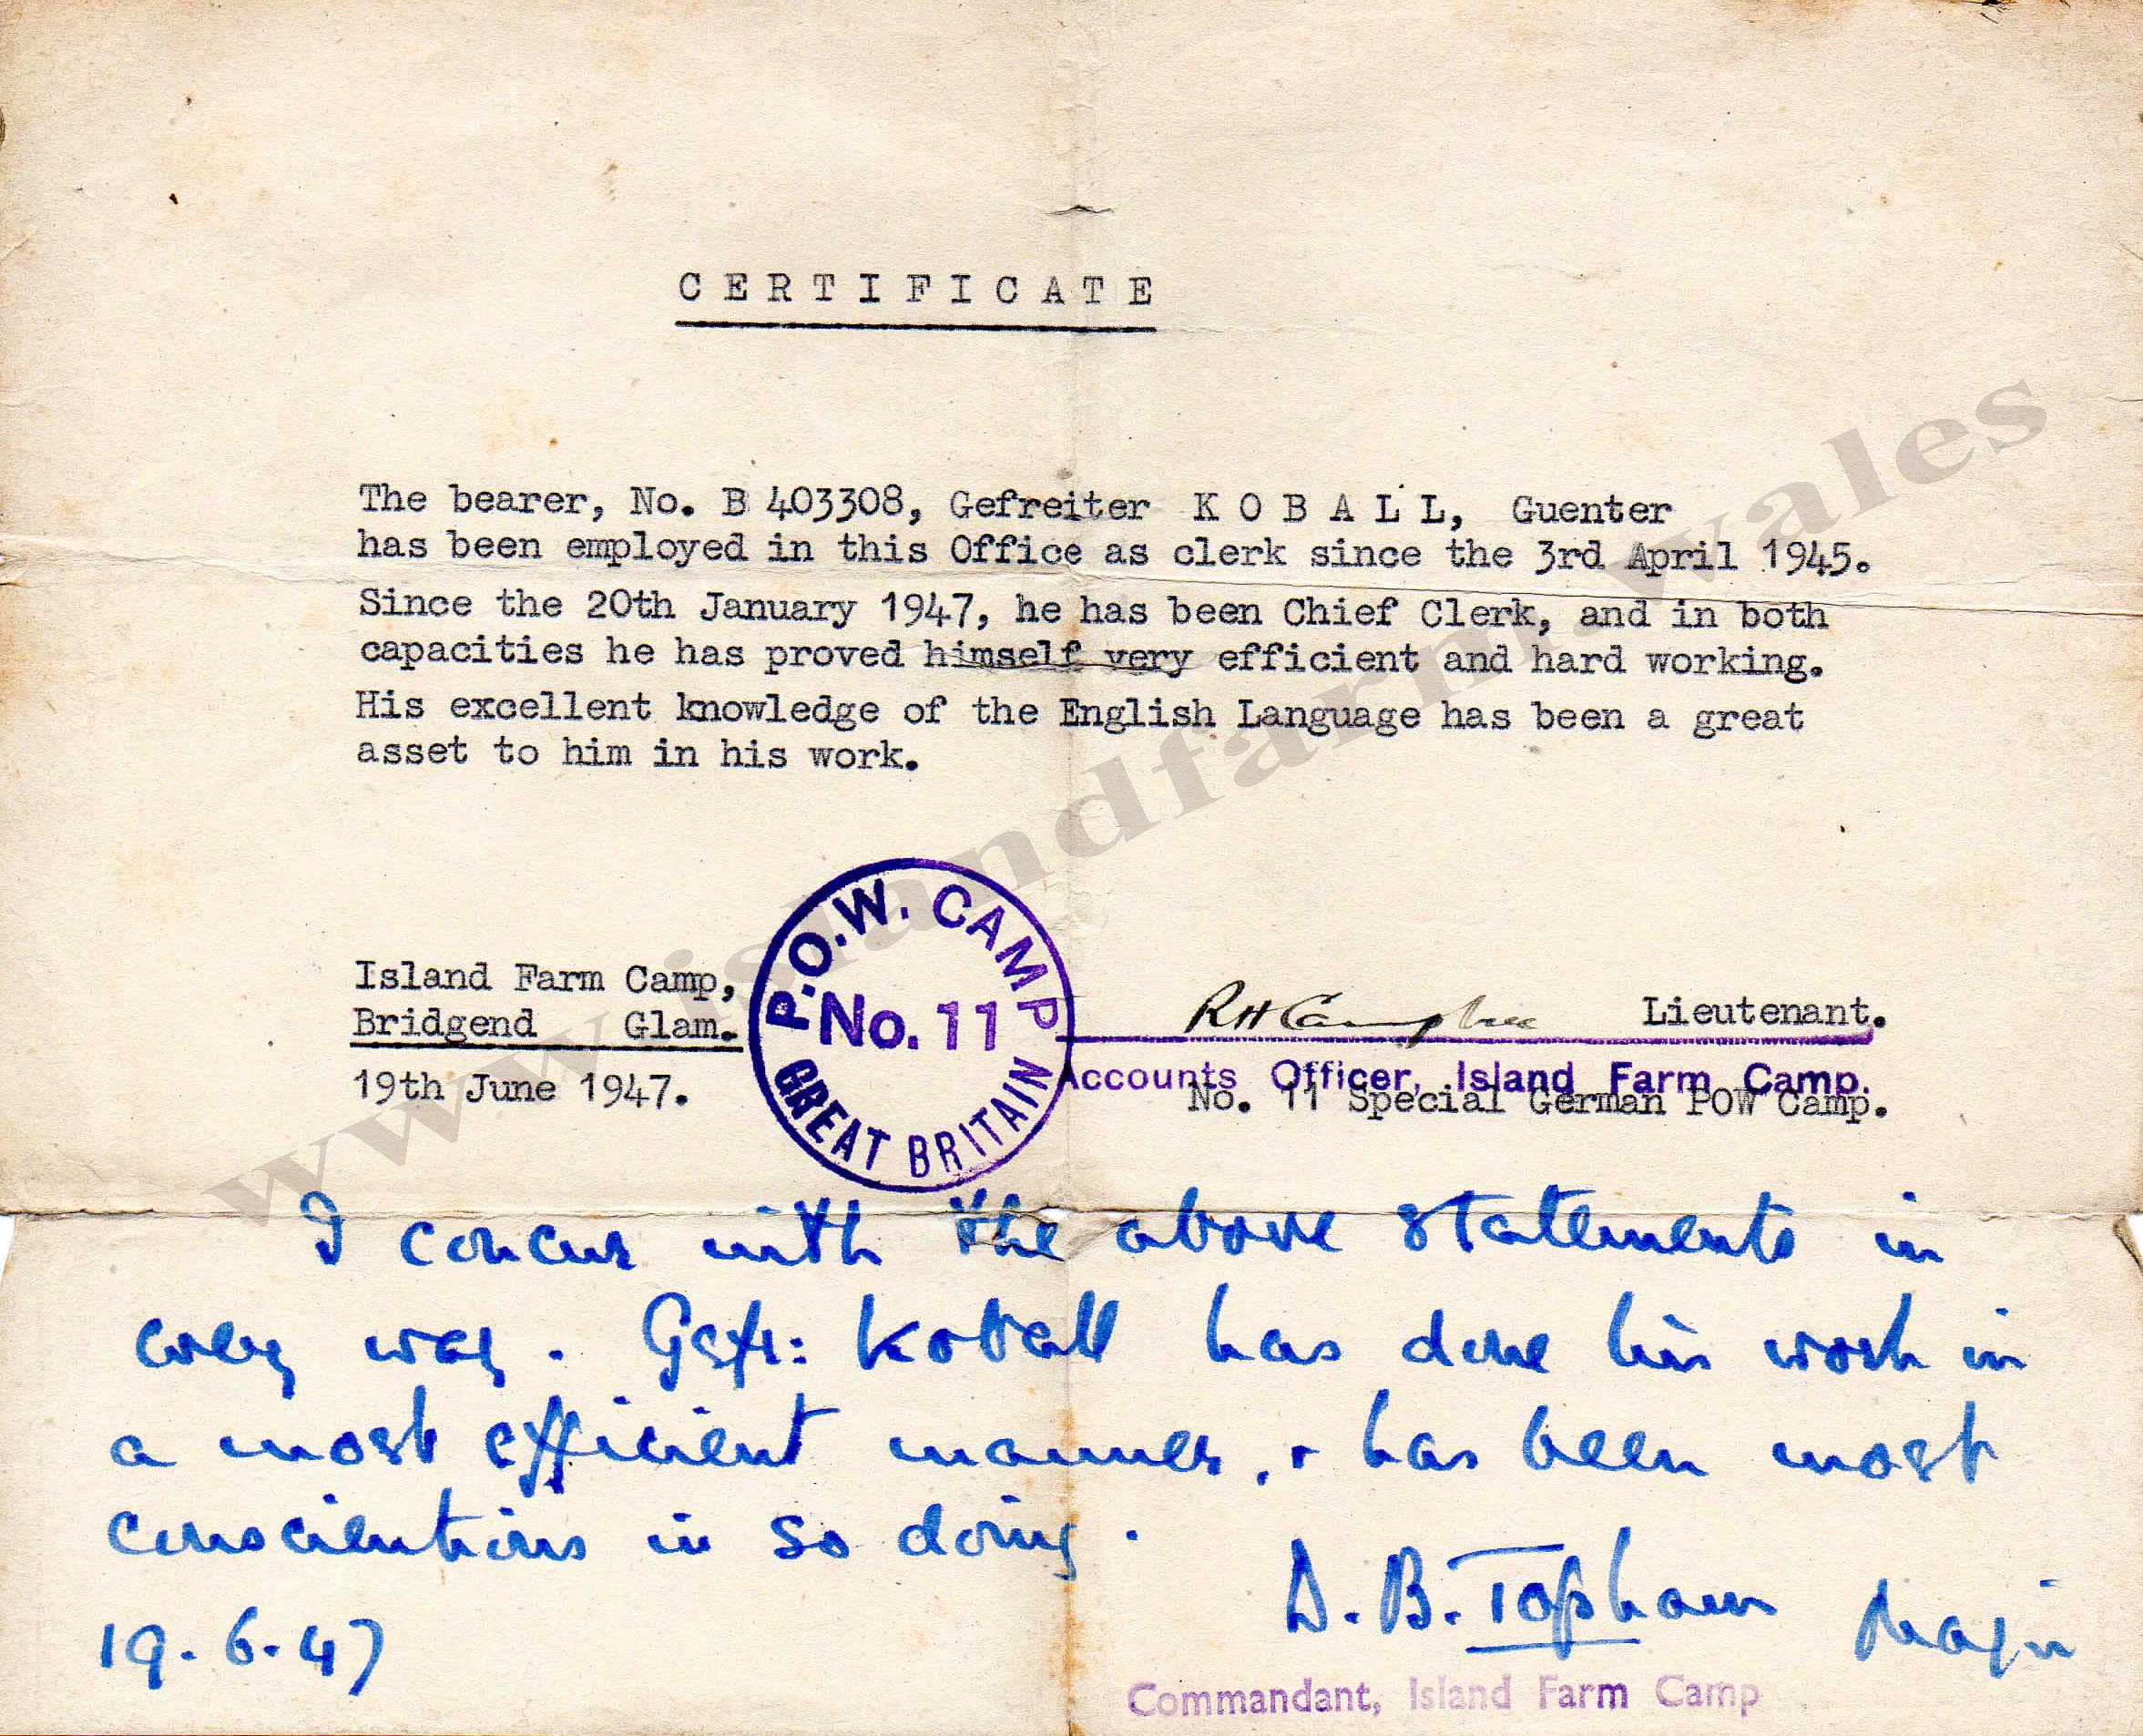 CERTIFICATE
The bearer, No. B 403308, Gefreiter K O B A L L, Guenter
has been employed in this Office as clerk since the 3rd April 1945.
Since the 20th January 1947, he has been Chief Clerk, and in both
capacities he has proved himself very efficient and hard working.
His excellent knowledge of the English Language has been a great
asset to him in his work.
Island Farm Camp,
Bridgend Glam.
19th June 1947.
P.O.W. CAMP
No. 11
GREAT BRITAIN
RH Campbell Lieutenant.
Accounts Officer, Island Farm Camp.
No. 11 Special German POW Camp.
I concur with the above statements in
every way. Gefr: Koball has done his work in
a most efficient manner, + has been most
conscientious in so doing.
19.6.47
D.B. Topham Major
Commandant, Island Farm Camp
www.islandfarm.wales